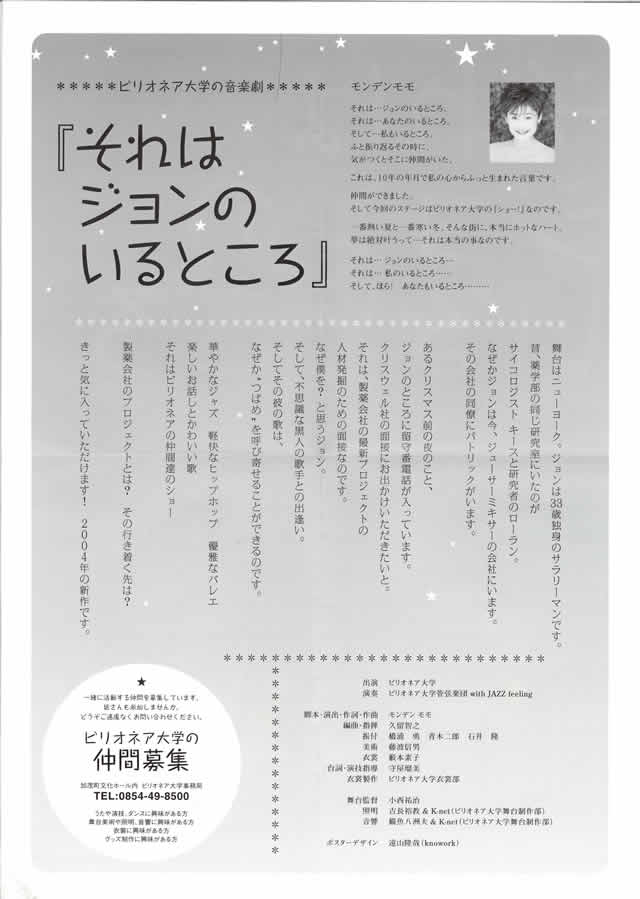 *****ビリオネア大学の音楽劇*****
『それは
ジョンの
いるところ』
モンデンモモ
それは…ジョンのいるところ。
それは…あなたのいるところ。
そして…私もいるところ。
ふと振り返るその時に、
気がつくとそこに仲間がいた。
これは、10年の年月で私の心からふっと生まれた言葉です。
仲間ができました。
そして今回のステージはビリオネア大学の「ショー!」なのです。
一番熱い夏と一番寒い冬。そんな街に、本当にホットなハート。
夢は絶対叶うって…それは本当の事なのです。
それは… ジョンのいるところ…
それは… 私のいるところ……
そして、ほら! あなたもいるところ………
舞台はニューヨーク。ジョンは33歳独身のサラリーマンです。
昔、薬学部の同じ研究室にいたのが
サイコロジスト キースと研究者のローラン。
なぜかジョンは今、ジューサーミキサーの会社にいます。
その会社の同僚にパトリックがいます。
あるクリスマス前の夜のこと、
ジョンのところに留守番電話が入っています。
クリスウェル社の面接にお出かけいただきたいと。
それは、製薬会社の最新プロジェクトの
人材発掘のための面接なのです。
なぜ僕を?と思うジョン。
そして、不思議な黒人の歌手との出逢い。
そしてその彼の歌は、
なぜか“つばめ”を呼び寄せることができるのです。
華やかなジャズ 軽快なヒップホップ 優雅なバレエ
楽しいお話しとかわいい歌
それはビリオネアの仲間達のショー
製薬会社のプロジェクトとは? その行き着く先は?
きっと気に入っていただけます! 2004年の新作です。
★
一緒に活動する仲間を募集しています。
皆さんも参加しませんか。
どうぞご遠慮なくお問い合わせください。
ビリオネア大学の
仲間募集
加茂町文化ホール内 ビリオネア大学事務局
TEL:0854-49-8500
うたや演技、ダンスに興味がある方
舞台美術や照明、音響に興味がある方
衣裳に興味がある方
グッズ制作に興味がある方
出演 ビリオネア大学
演奏 ビリオネア大学管弦楽団 with JAZZ feeling
脚本・演出・作詞・作曲 モンデン モモ
編曲・指揮 久留智之
振付 橋浦 勇 青木二郎 石井 隆
美術 藤波信男
衣裳 藪本素子
台詞・演技指導 守屋瑠美
衣裳製作 ビリオネア大学衣裳部
舞台監督 小西祐治
照明 吉長裕教 & K-net(ビリオネア大学舞台制作部)
音響 鯨魚八洲夫 & K-net(ビリオネア大学舞台制作部)
ポスターデザイン 遠山隆哉(knowork)